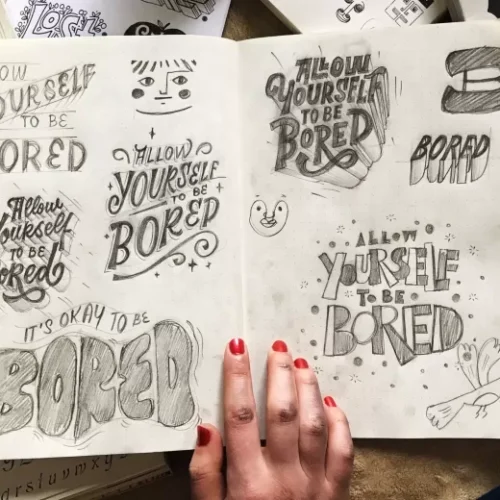 YOURSELF
TO BE
ORED
ALLOW
YOURSELF
TO BE
BORED
Allow
Yourself
TO BE
Bored
IT'S OKAY TO BE
BORED
ALLOW
YOURSELF
TO BE
BORED
BORED
ALLOW
YOURSELF
TO BE
BORED
r s t u v w x y z